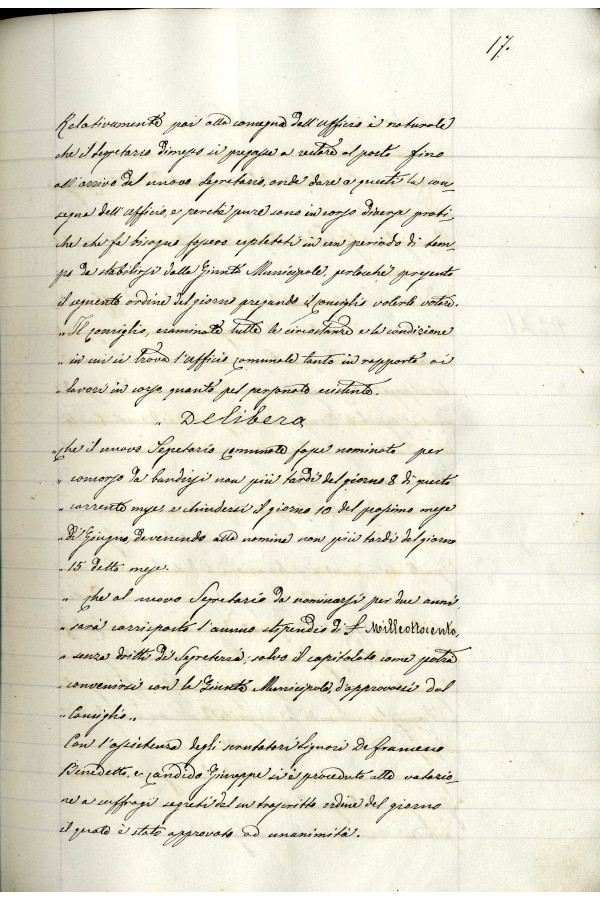 17.
Relativamente poi alla consegna dell'ufficio è naturale
che il Segretario dimesso si pregasse a restare al posto fino
all'arrivo del nuovo Segretario, onde dare a questi la con-
segna dell'ufficio, e perchè pure sono in corso diverse prati-
che che fa bisogno fossero espletati in un periodo di tem-
po da stabilirsi dalla Giunta Municipale, perlochè presenta
il seguente ordine del giorno pregando il Consiglio volerlo votare
„ Il Consiglio, esaminate tutte le circostanze e la condizione
„ in cui si trova l'ufficio Comunale tanto in rapporto ai
„ lavori in corso, quanto pel personale esistente.
„ Delibera
„ Che il nuovo Segretario Comunale fosse nominato per
„ concorso da bandirsi non più tardi del giorno 8 di questo
„ corrente mese e chiudersi il giorno 10 del prossimo mese
„ di Giugno, devenendo alla nomina non più tardi del giorno
„ 15 detto mese.
„ Che al nuovo Segretario da nominarsi per due anni
„ sarà corrisposto l'annuo stipendio di £ Milleottocento,
„ senza dritti di Segreteria; salvo il capitolato come potrà
„ convenirsi con la Giunta Municipale, d'approvarsi dal
„ Consiglio „
Con l'assistenza degli scrutatori Signori De Francesco
Benedetto, e Candido Giuseppe si è proceduto alla votazio-
ne a suffragi segreti del su trascritto ordine del giorno
il quale è stato approvato ad unanimità.